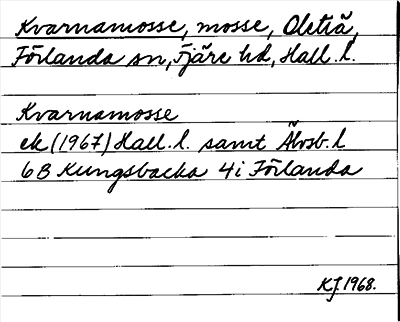 Kvarnamosse, mosse, Oleträ,
Förlanda sn, Fjäre hd, Hall. l.
Kvarnamosse
ek (1967) Hall. l. samt Älvsb. l
6B Kungsbacka 4i Förlanda
KJ. 1968.